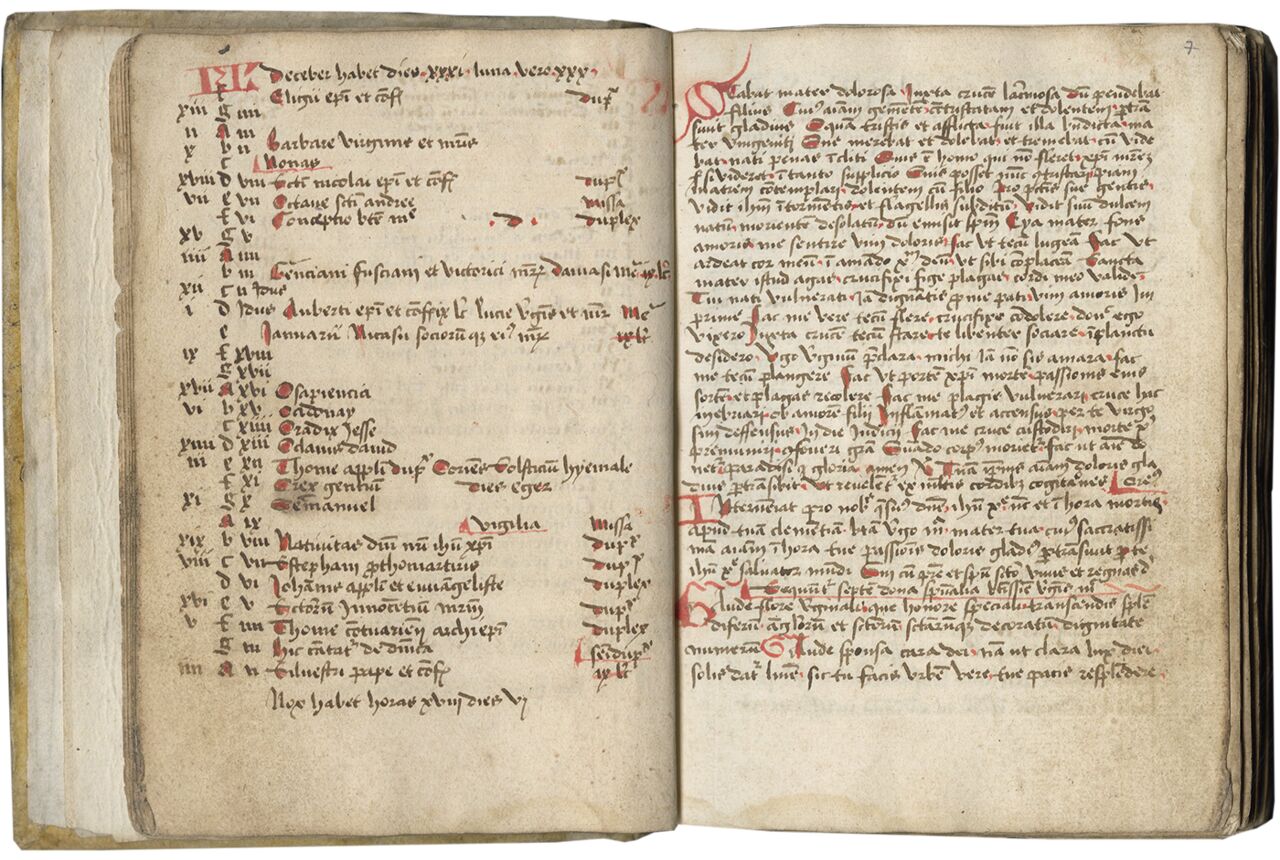 KL December habet dies xxxi luna vero xxx
f Eligii epi et conf dupl
xiii g iiii
ii A iii
x b ii Barbare virginis et mris
c Nonas
xviii d viii Scti nicolai epi et conf dupl
vii e vii Octave scti andree missa
f vi Conceptio bte me d duplex
xv g v
iiii A iiii
b iii Genciani fusciani et victorici mr damasi me ix lc
xii c ii Idus
i d Idus Auberti epi et conf ix lc lucie vgis et mr me
e Januarii Nicasii sociorumque eius mr ix lc
ix f xviii
g xvii
xvii A xvi O sapiencia
vi b xv O adonay
c xiiii O radix Jesse
xiiii d xiii O clavis david
iii e xii Thome appli dupl O oriens Solsticium hyemale
f xi O rex gencium dies eger
xi g x O emanuel
A ix Vigilia missa
xix b viii Nativitas dni nri ihu xpi dupl
viii c vii Stephani prothomartiris dupl
d vi Johannis appli et euvangeliste duplex
xvi e v Sctorum Innocencium mrm dupl
v f iiii Thome contuariens archiepi duplex
g iii Hic cantatr de dnica semidupl
iiii A ii Silvestri pape et conf ix lc
Nox habet horas xviii dies vi
7
Stabat mater dolorosa Juxta crucem lacrimosa dum pendebat
filius Cuius aiam gementem contristatam et dolentem ptran
sivit gladius O quam tristis et afflicta fuit illa bndicta ma
ter unigeniti Que merebat et dolebat et tremebat cum vide
bat nati penas incliti Quis e homo qui non fleret xpi mrem
si videret in tanto supplicio Quis posset non contristari piam
matrem contemplari dolentem cum filio Pro pctis sue gentis
vidit ihm in tormentis et flagellis subditum vidit suum dulcem
natum moriente desolatum dum emisit spm Eya mater fons
amoris me sentire vim doloris fac ut tecum lugeam Fac ut
ardeat cor meum in amando xpm deum ut sibi complaceam Sancta
mater istud agas crucifixi fige plagas cordi meo valide
Tui nati vulnerati Jam dignantis pro me pati vim amoris im
prime Fac me vere tecum flere crucifixo condolere donec ego
vixero Juxta crucem tecum stare te libenter sociare in planctu
desidero Virgo virginum preclara michi Jam non sis amara fac
me tecum plangere Fac ut portem xpi mortem passionis eius
sortem et plagas recolere Fac me plagis vulnerari cruce hac
inebriari ob amorem filii Inflammatus et accensus per te virgo
sim deffensus In die Judicii Fac me cruce custodiri morte xpi
premuniri confoveri gra Quando corpus morietur fac ut anime do
netur paradisi gloria amen V Tuam ipsius aiam doloris gla
dius pertransibit Ut revelentur ex multis cordibus cogitationes Oremus
Interveniat pro nobis qs dne ihu xpe nunc et in hora mortis
apud tuam clementiam bta virgo maria mater tua cuius sacratissi
mam aiam in hora tue passionis doloris gladius pertransivit per te
ihu xpe salvator mundi Qui cum pre et spu scto vivis et regnas ds
Sequntur septem dona spiritualia btissime virginis marie
Gaude flore virginali que honore speciali transcendis splen
diferum anglorum et sctorum sctarumque decoratum dignitate
numerum Gaude sponsa cara dei nam ut clara lux diei
solis datur lumine sic tu facis urbem vere tue pacis resplendere